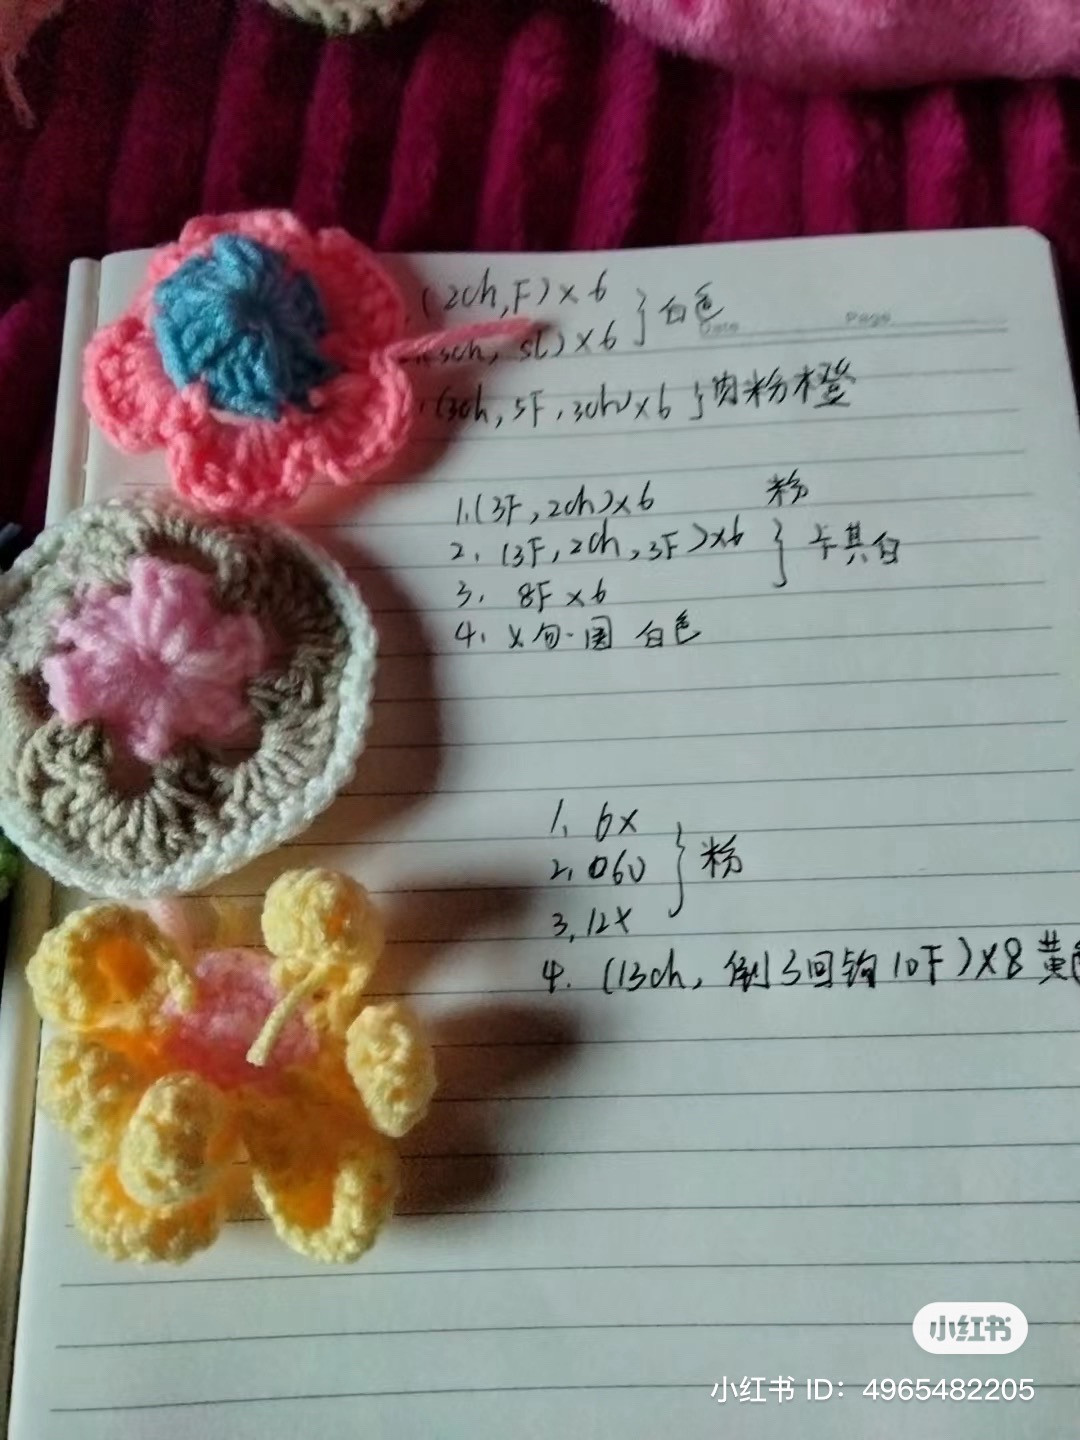 (2ch,F)×6 } 白色
Date Page
sl)×6
(3ch,5F,3ch)×6 } 肉粉橙
1.(3F,2ch)×6 粉
2.(3F,2ch,3F)×6 } 卡其白
3. 8F×6
4. X勾一圈 白色
1. 6X
2. 06V } 粉
3. 12X
4. (13ch,倒3回钩10F)×8 黄色
小红书
小红书 ID: 4965482205